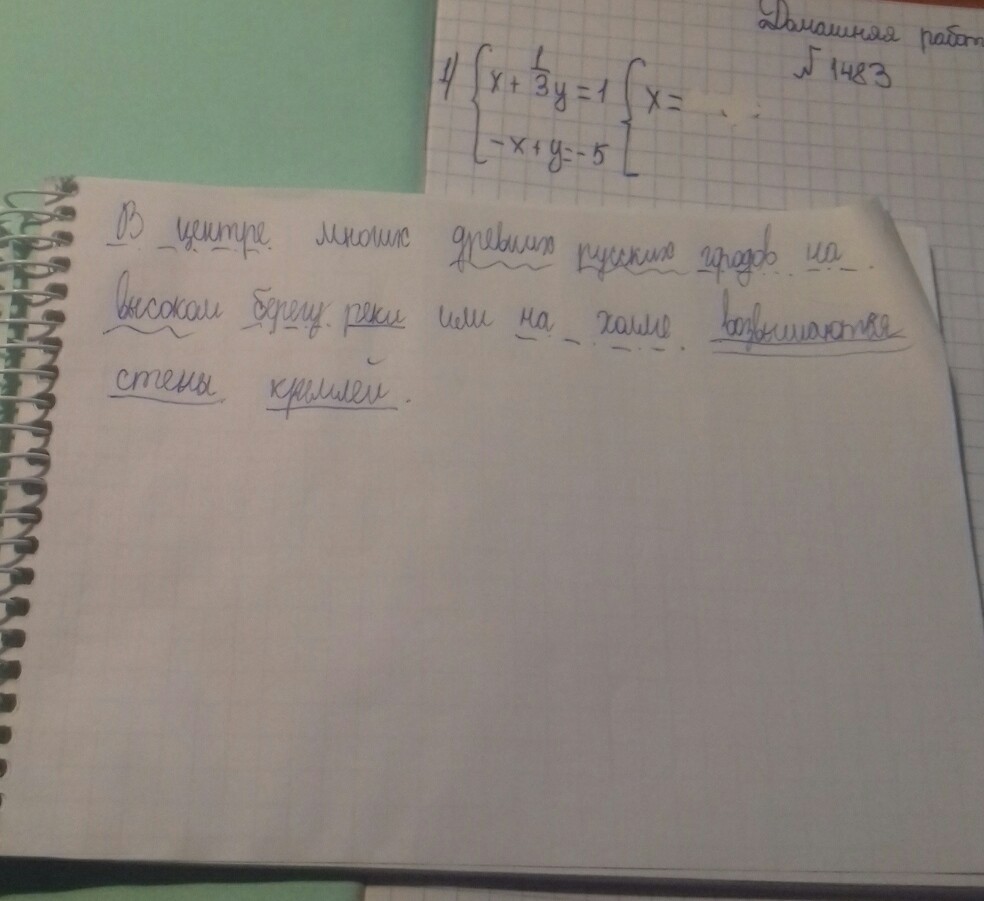 Домашняя работ
№ 1483
1) { x + 1/3 y = 1 { x =
-x + y = -5
В центре многих древних русских городов на
высоком берегу реки или на холме возвышаются
стены кремлей.